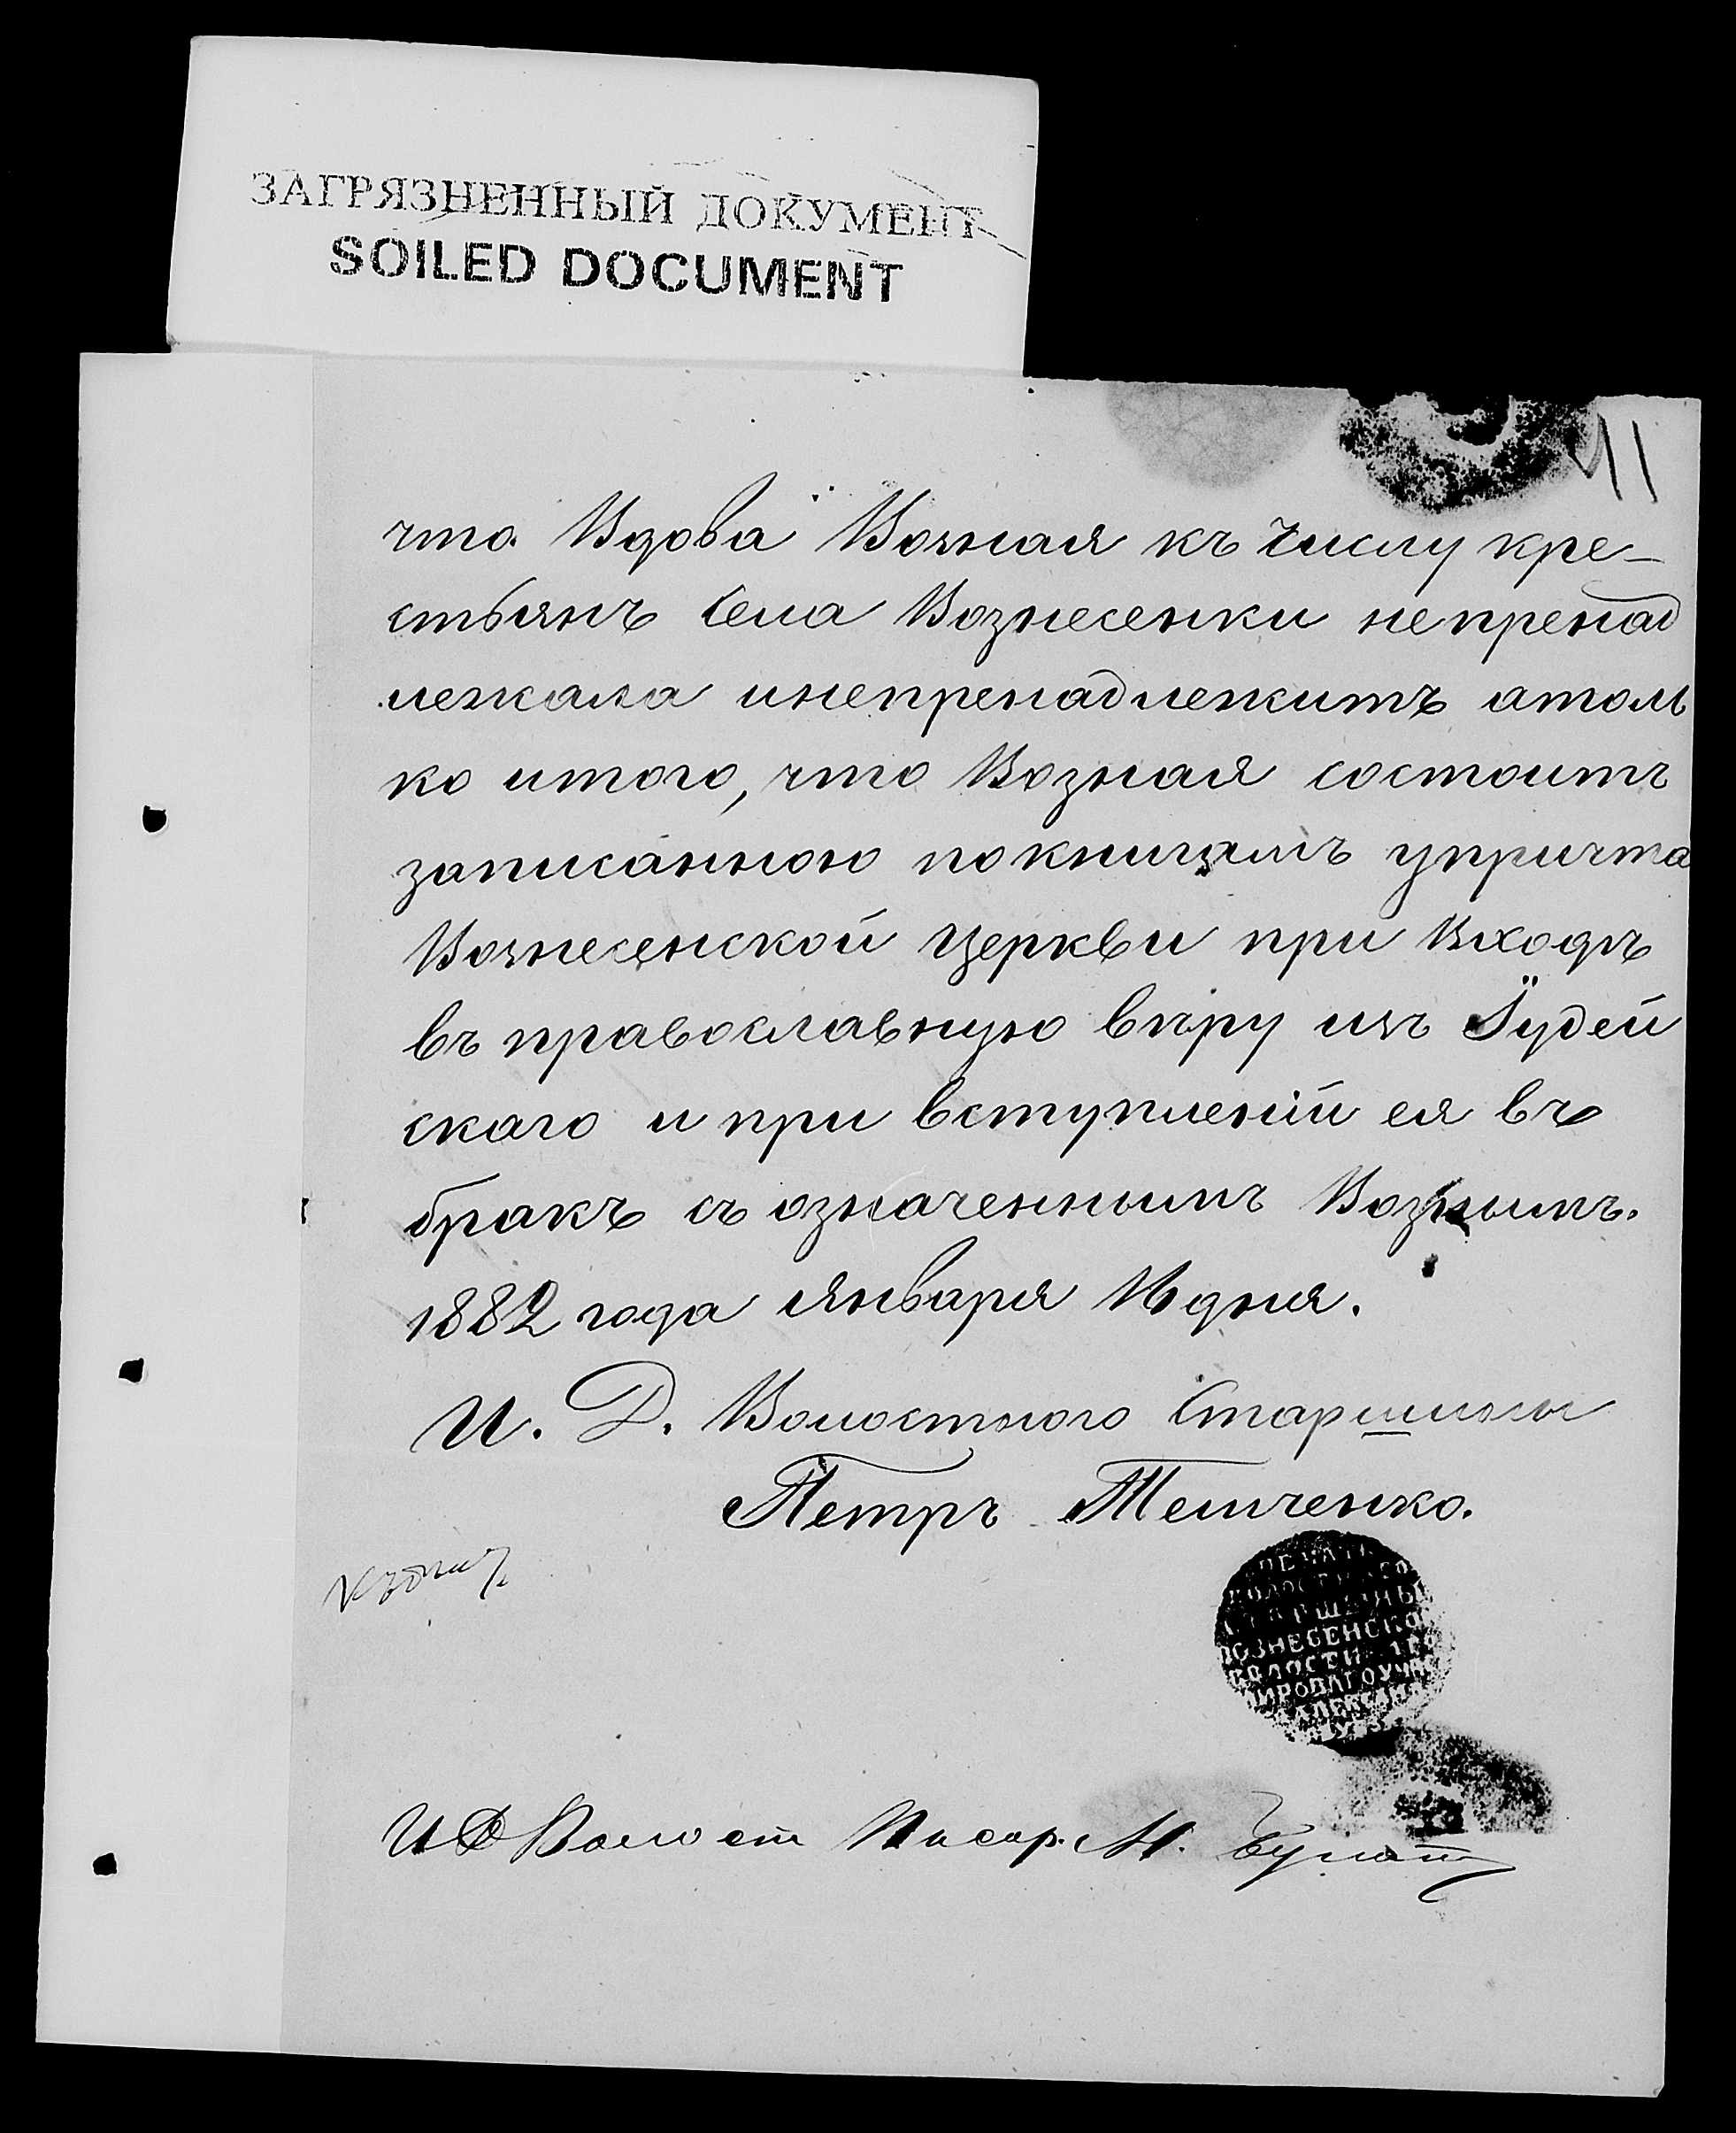 ЗАГРЯЗНЕННЫЙ ДОКУМЕНТ
SOILED DOCUMENT
11
что Вдова Возная къ числу кре-
стьянъ села Вознесенки непренад
лежала инепренадлежитъ атоль
ко итого, что Возная состоитъ
записанною покнигамъ упричта
Вознесенской Церкви при входѣ
въ православную вѣру изъ Іудей
скаго и при вступленіи ея въ
бракъ съ означеннымъ Вознымъ.
1882 года Января 16 дня.
И. Д. Волостного Старшины
Петръ Темченко.
ПЕЧАТЬ
ВОЛОСТНАГО
СТАРШИНЫ
ВОЗНЕСЕНСКО
ВОЛОСТИ 1го
МИРОВАГО УЧАС
АЛЕКСАН
У
ИД Волост Писар. М.